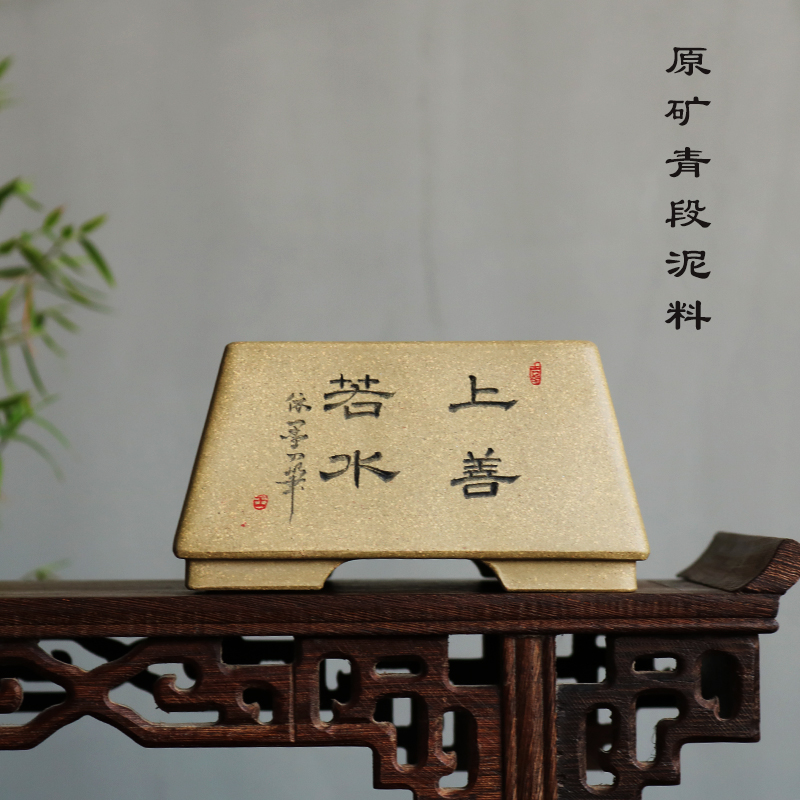 原矿青段泥料
上善
若水